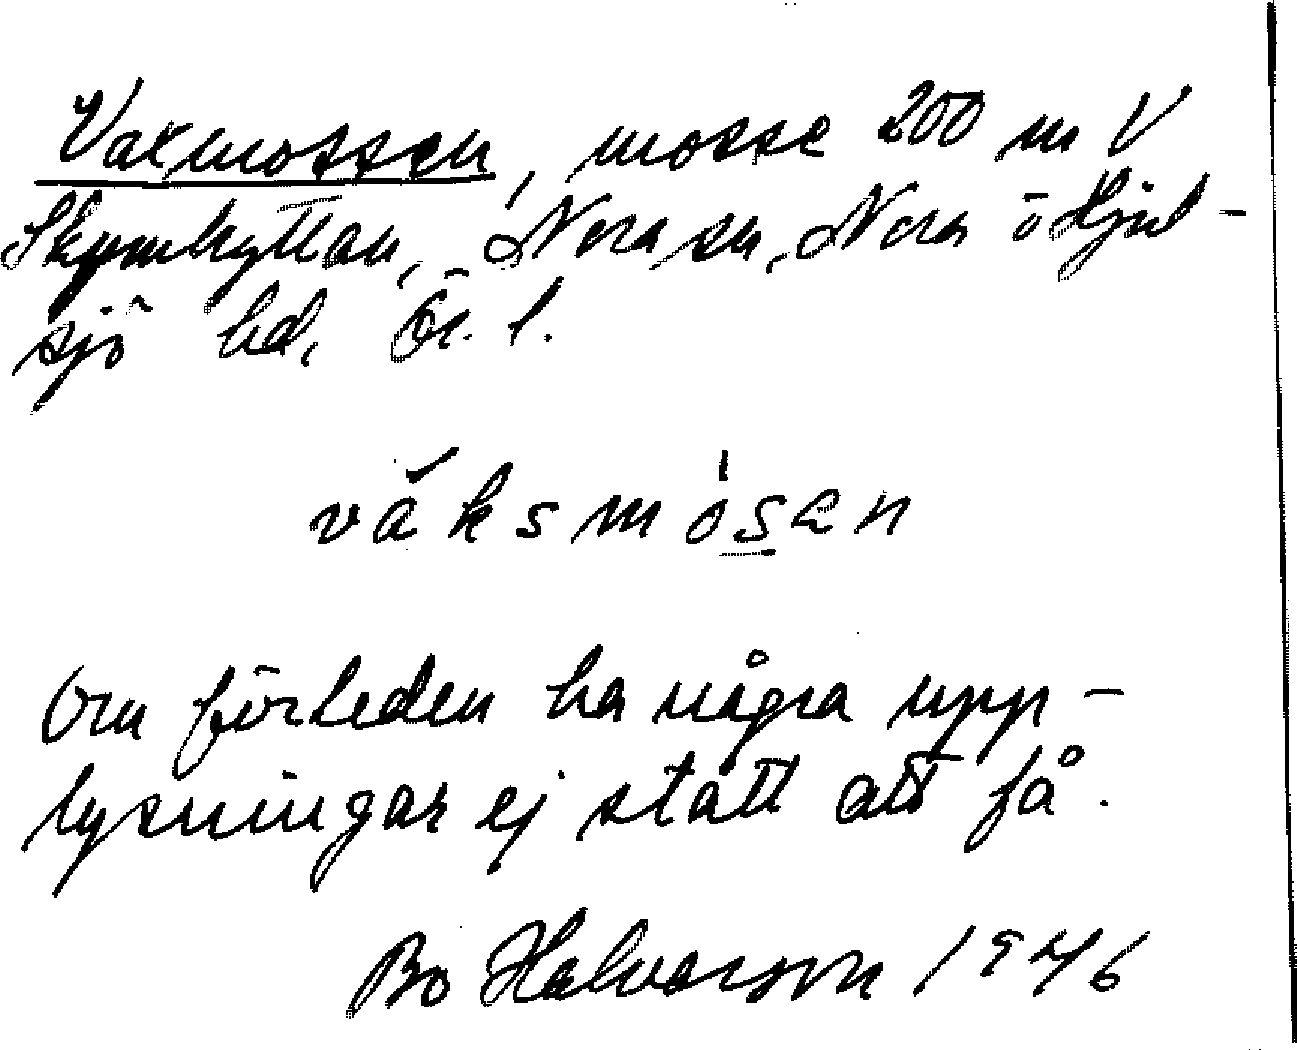 Vaxmossen, mosse 200 m V
Skymhyttan, Nora sn, Nora o Hjul-
sjö hd, Ör. l.
våksmósen
Om förleden ha några upp-
lysningar ej stått att få.
Bo Halvarson 1946